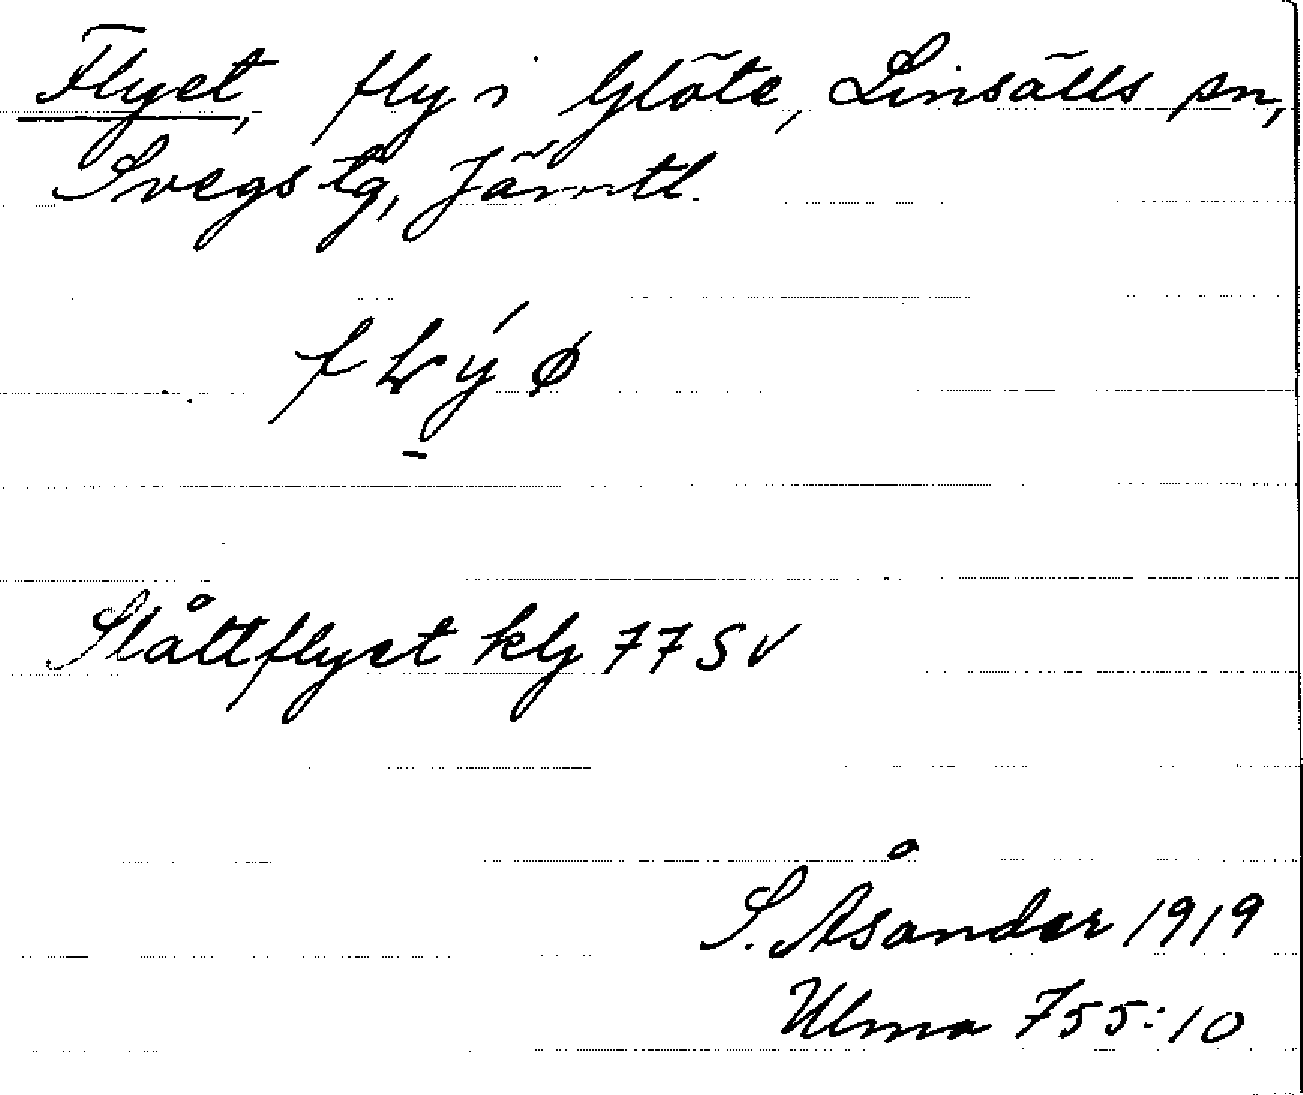 Flyet, fly i Glöte, Linsälls sn,
Svegs tg, Jämtl.
Slåttflyet klj 77 SV
S. Åsander 1919
Ulma 755:10